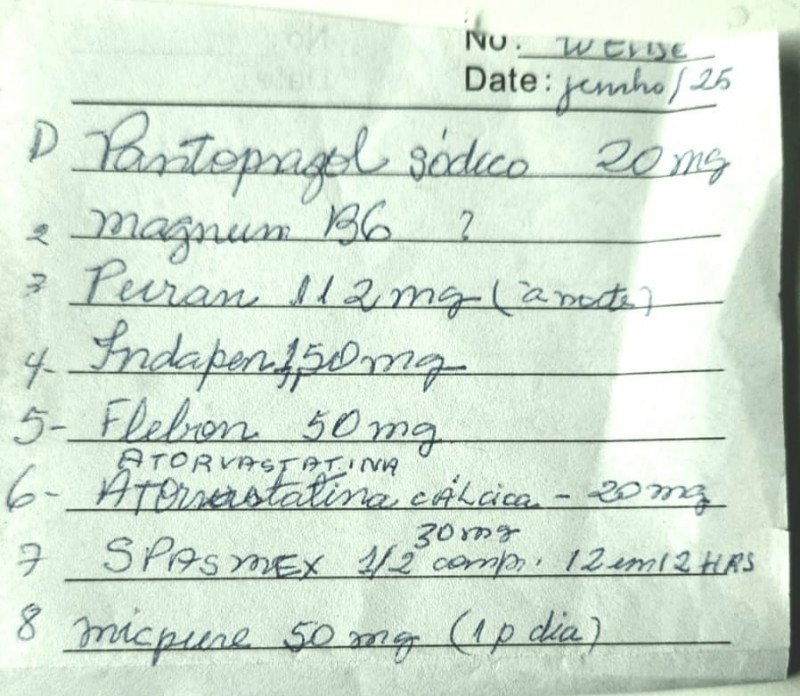 No:
Date: junho/25
1) Pantoprazol sódico 20 mg
2 magnum B6 ?
3 Puran 112 mg (a noite)
4- Indapen 1,50 mg
5- Flebon 50 mg
ATORVASTATINA
6- Atorvastatina cálcica - 20 mg
30 mg
7 SPASMEX 1/2 comp. 12 em 12 HRS
8 micpure 50 mg (1 p dia)